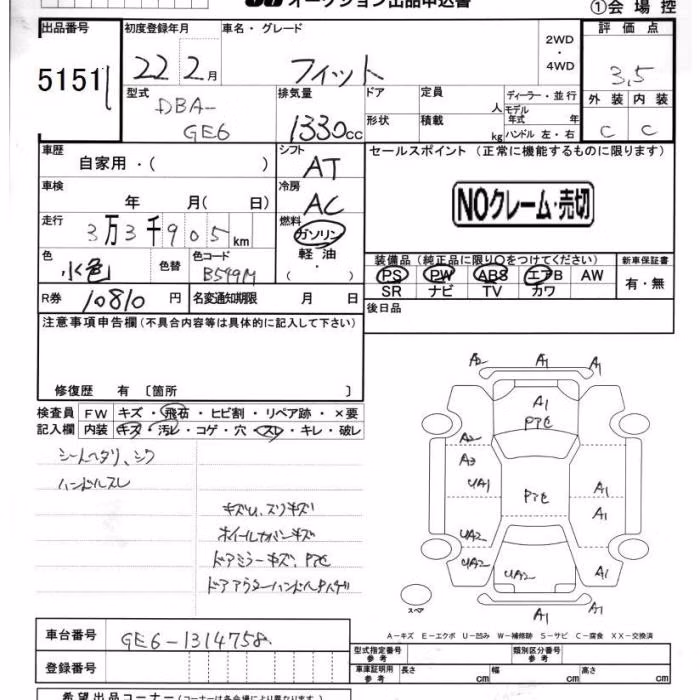 オークション出品申込書
①会場控
出品番号
初度登録年月
車名・グレード
2WD
・
4WD
評価点
5151
22年2月
フィット
3.5
型式
DBA-
GE6
排気量
1330cc
ドア
定員
人
ディーラー・並行
モデル
年式 年
外装 内装
形状
積載
kg
ハンドル 左・右
C C
車歴
自家用・( )
シフト
AT
セールスポイント (正常に機能するものに限ります)
車検
年 月( 日)
冷房
AC
NOクレーム・売切
走行
3万3千905km
燃料
ガソリン
軽油
・
( )
色
水色
色替
色コード
B599M
装備品 (純正品に限り○をつけてください)
新車保証書
PS PW ABS エアB AW
SR ナビ TV カワ
有・無
R券 10810円
名変通知期限 月 日
後日品
注意事項申告欄 (不具合内容等は具体的に記入して下さい)
修復歴 有 〔箇所 〕
検査員
記入欄
FW キズ・飛石・ヒビ割・リペア跡・×要
内装 キズ・汚レ・コゲ・穴・スレ・キレ・破レ
シートヘタリ、シワ
ハンドルスレ
キズU、スリキズ
ホイールカバーキズ
ドアミラーキズ、Pアセ
A2 A1 A1
A1
Pアセ
A2
A3
UA1
Pアセ
A1
A1
UA2
UA2
UA2
A1
A1 A1
スペア
A－キズ E－エクボ U－凹み W－補修跡 S－サビ C－腐食 XX－交換済
車台番号 GE6-1314758
型式指定番号
参考
類別区分番号
参考
登録番号
車庫証明用
参考
長さ cm
幅 cm
高さ cm
希望出品コーナー